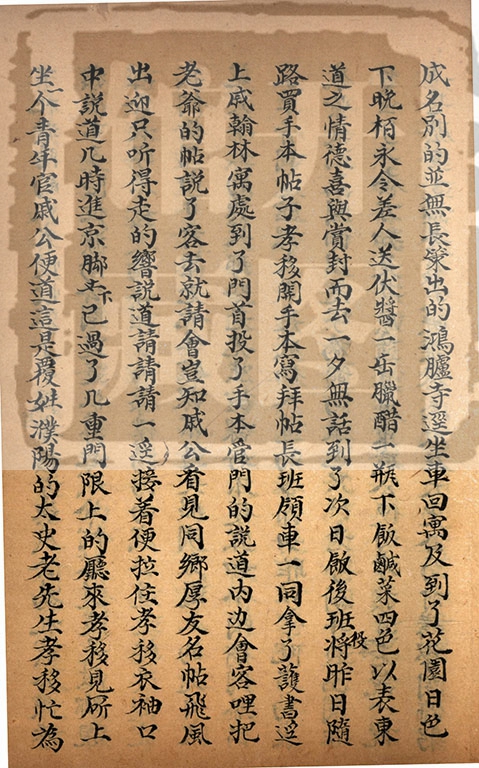 成名別的並無長策出的鴻臚寺逕坐車回寓及到了花園日色
下晚栢永令差人送伏醬一缶臘醋一瓶下飯鹹菜四色以表東
道之情德喜與賞封而去一夕無話到了次日飯後班役將昨日隨
路買手本帖子孝移開手本寫拜帖長班領車一同拿了護書逕
上戚翰林寓處到了門首投了手本管門的說道內边會客哩把
老爺的帖說了客去就請會豈知戚公看見同鄉厚友名帖飛風
出迎只听得走的響說道請請請一逕接着便拉住孝移衣袖口
中說道几時進京脚步下已過了几重門限上的廳來孝移見厛上
坐一个青年官戚公便道這是覆姓濮陽的太史老先生孝移忙為